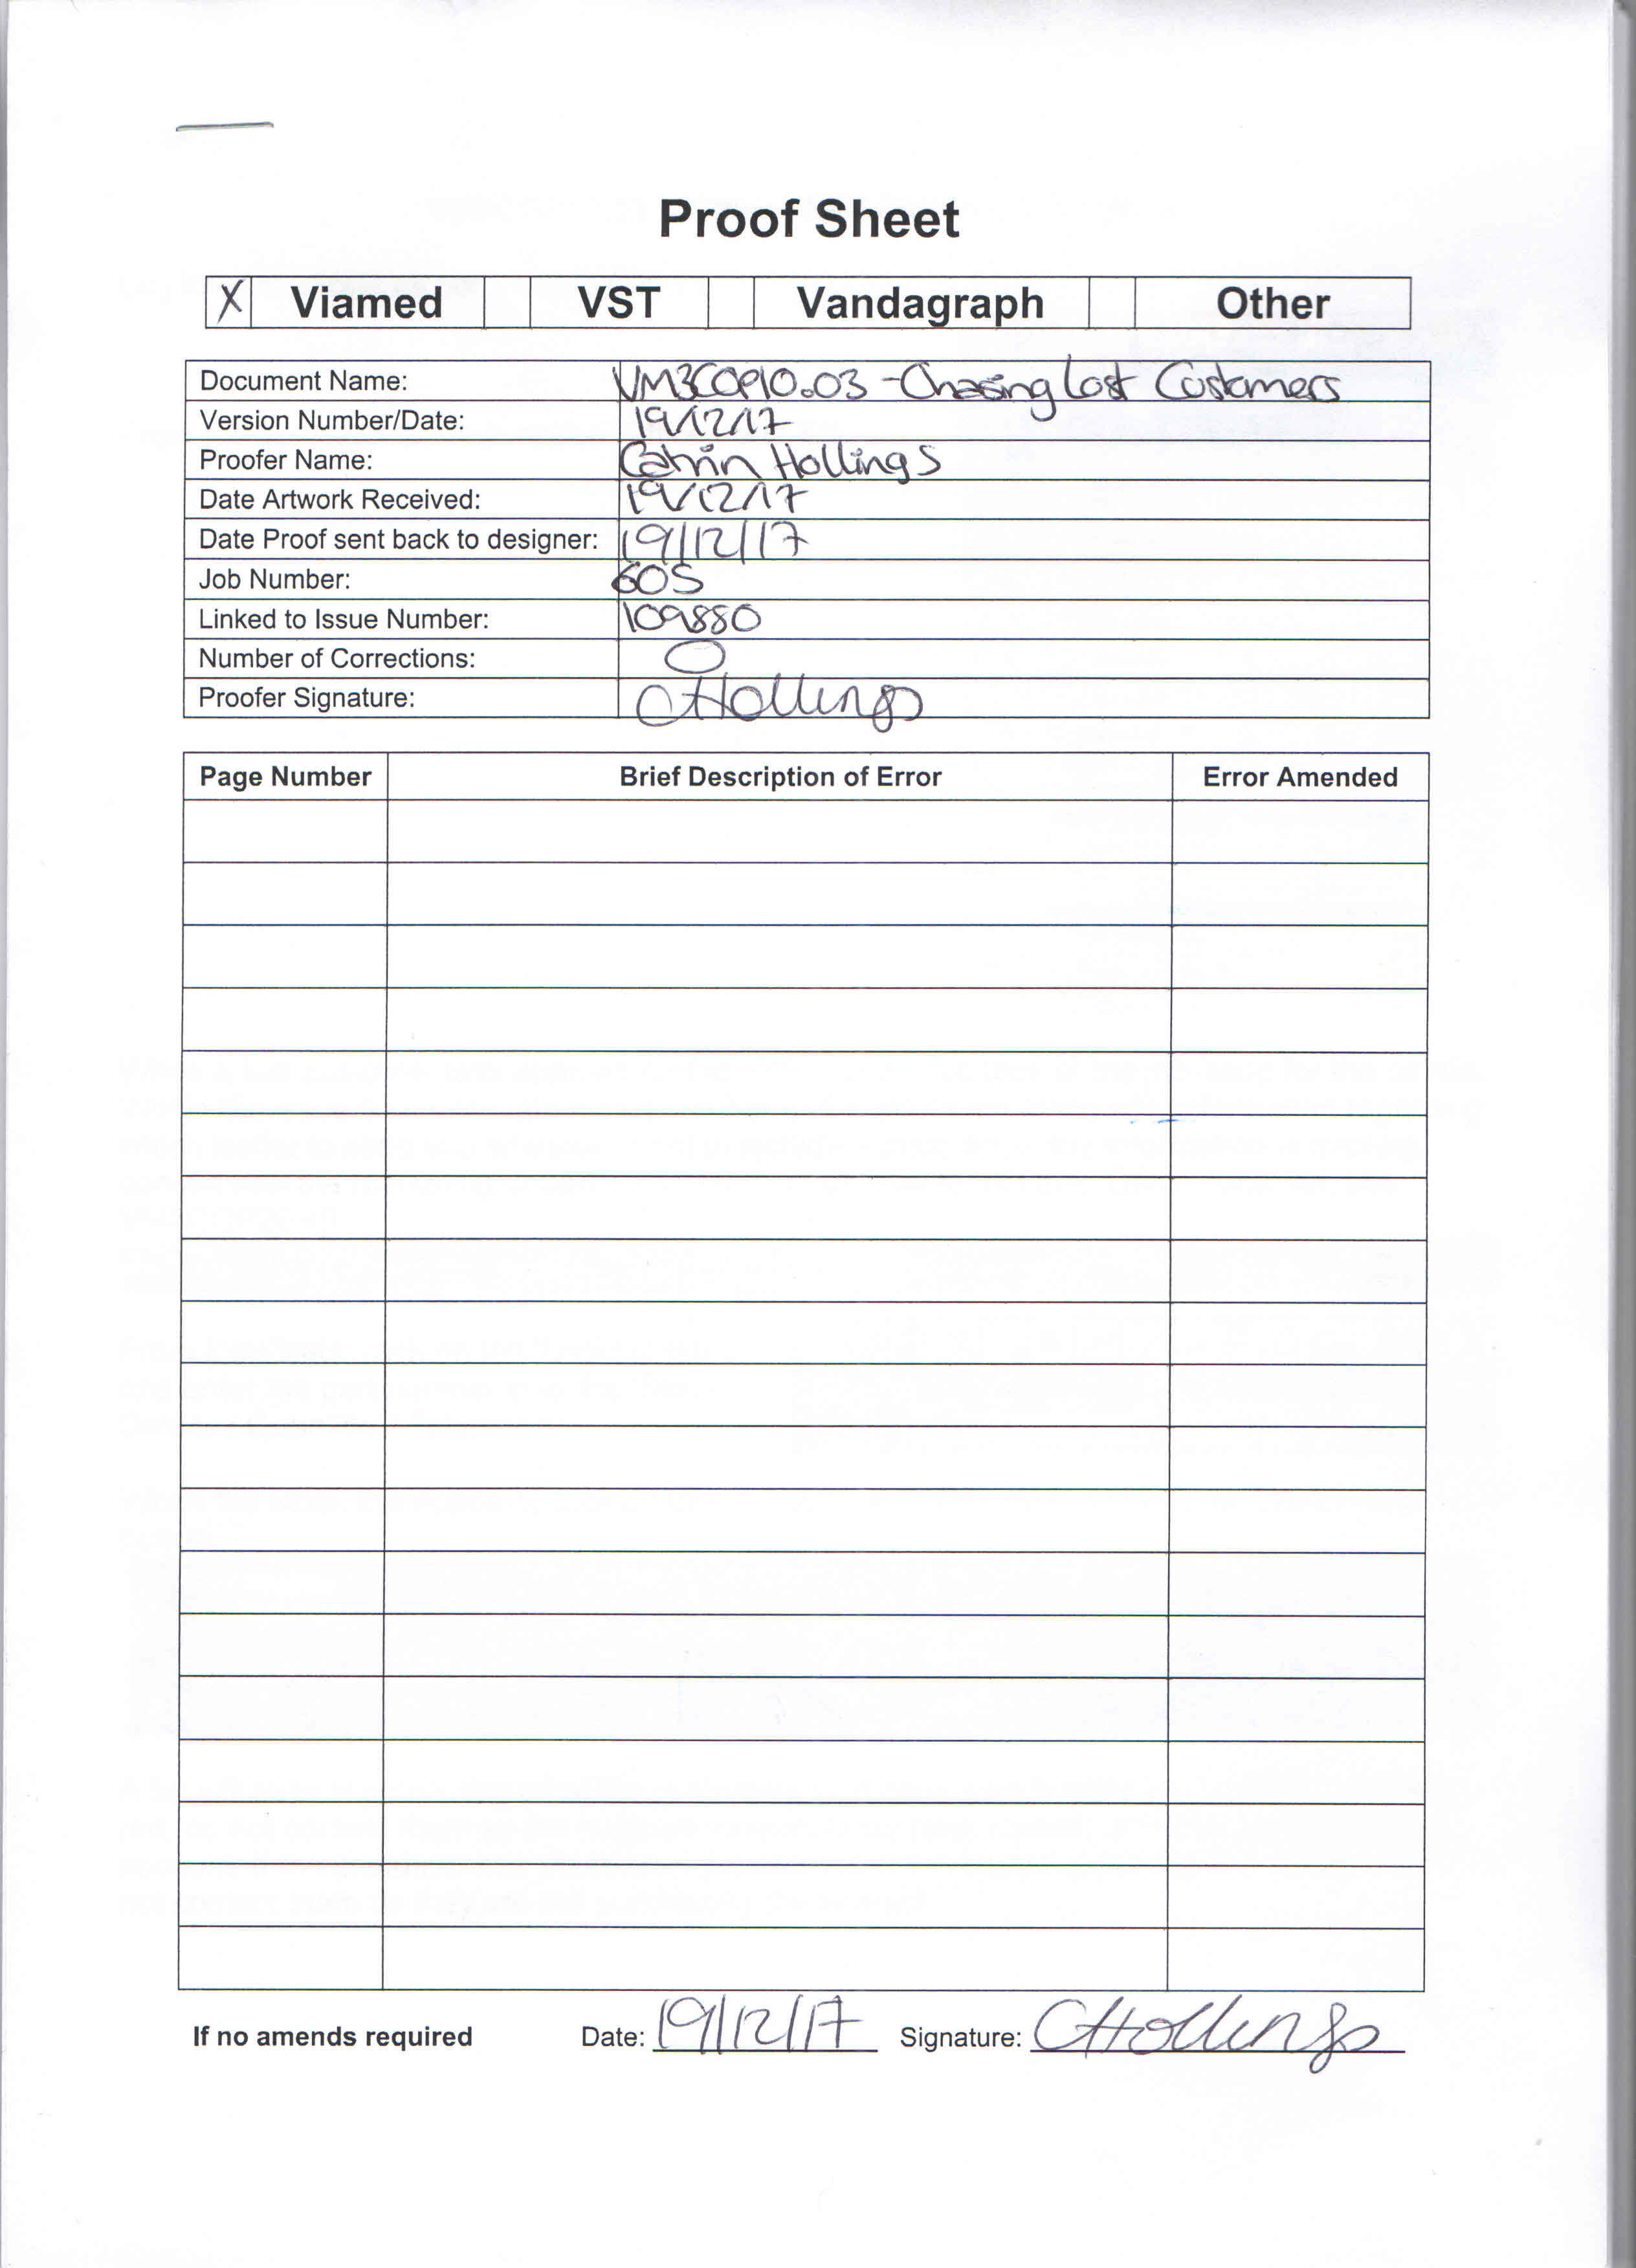 Proof Sheet
X Viamed VST Vandagraph Other
Document Name: VM3COP10.03 - Chasing Lost Customers
Version Number/Date: 19/12/17
Proofer Name: Catrin Hollings
Date Artwork Received: 19/12/17
Date Proof sent back to designer: 19/12/17
Job Number: 605
Linked to Issue Number: 109880
Number of Corrections: 0
Proofer Signature: CHollings
Page Number Brief Description of Error Error Amended
If no amends required Date: 19/12/17 Signature: CHollings